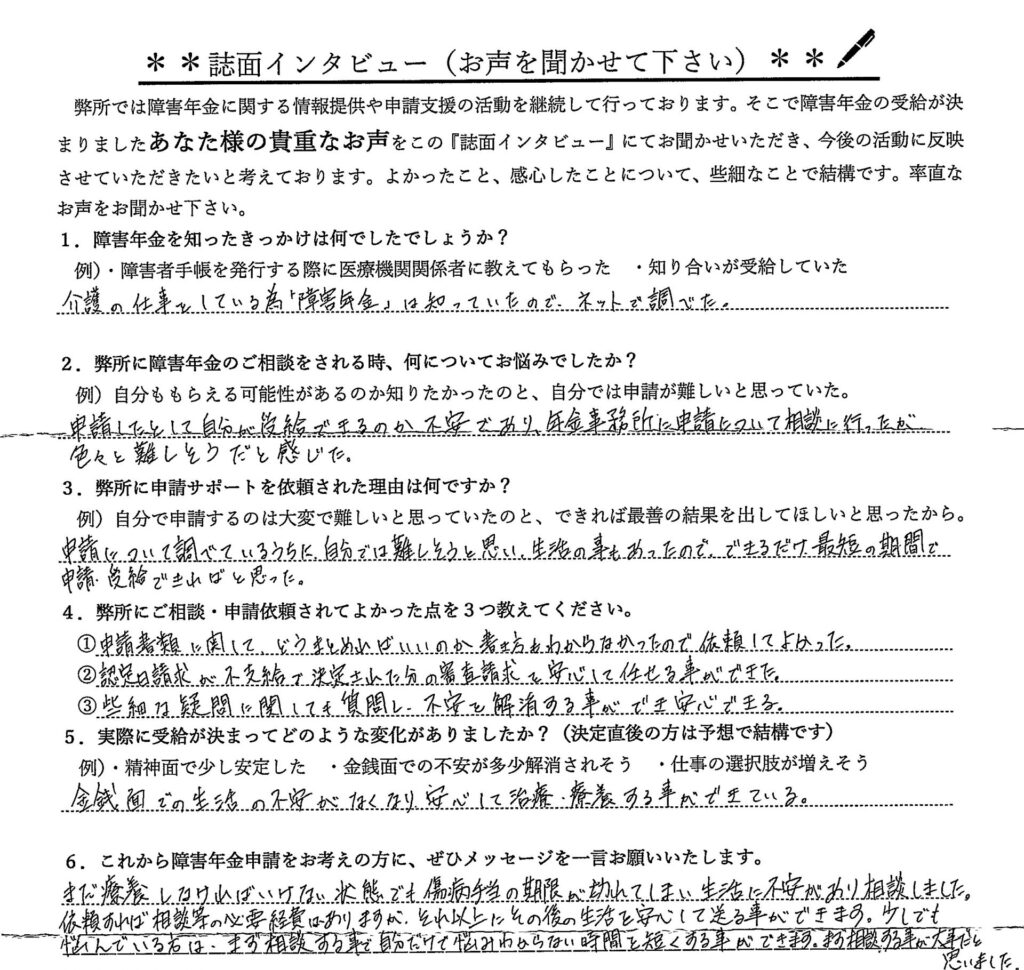 ＊＊誌面インタビュー（お声を聞かせて下さい）＊＊
弊所では障害年金に関する情報提供や申請支援の活動を継続して行っております。そこで障害年金の受給が決
まりましたあなた様の貴重なお声をこの『誌面インタビュー』にてお聞かせいただき、今後の活動に反映
させていただきたいと考えております。よかったこと、感心したことについて、些細なことで結構です。率直な
お声をお聞かせ下さい。
１．障害年金を知ったきっかけは何でしたでしょうか？
例）・障害者手帳を発行する際に医療機関関係者に教えてもらった　・知り合いが受給していた
介護の仕事をしている為「障害年金」は知っていたので、ネットで調べた。
２．弊所に障害年金のご相談をされる時、何についてお悩みでしたか？
例）自分ももらえる可能性があるのか知りたかったのと、自分では申請が難しいと思っていた。
申請したとして自分が受給できるのか不安であり、年金事務所に申請について相談に行ったが
色々と難しそうだと感じた。
３．弊所に申請サポートを依頼された理由は何ですか？
例）自分で申請するのは大変で難しいと思っていたのと、できれば最善の結果を出してほしいと思ったから。
申請について調べているうちに、自分では難しそうと思い、生活の事もあったので、できるだけ最短の期間で
申請・受給できればと思った。
４．弊所にご相談・申請依頼されてよかった点を３つ教えてください。
①申請書類に関して、どうまとめればいいのか書き方もわからなかったので依頼してよかった。
②認定日請求が不支給で決定された分の審査請求を安心して任せる事ができた。
③些細な疑問に関しても質問し、不安を解消する事ができ安心できる。
５．実際に受給が決まってどのような変化がありましたか？（決定直後の方は予想で結構です）
例）・精神面で少し安定した　・金銭面での不安が多少解消されそう　・仕事の選択肢が増えそう
金銭面での生活の不安がなくなり、安心して治療・療養する事ができている。
６．これから障害年金申請をお考えの方に、ぜひメッセージを一言お願いいたします。
まだ療養しなければいけない状態でも傷病手当の期限が切れてしまい生活に不安があり相談しました。
依頼すれば相談等の必要経費はありますが、それ以上にその後の生活を安心して送る事ができます。少しでも
悩んでいる方は、まず相談する事で自分だけで悩みわからない時間を短くする事ができます。まず相談する事が大事だと
思いました。